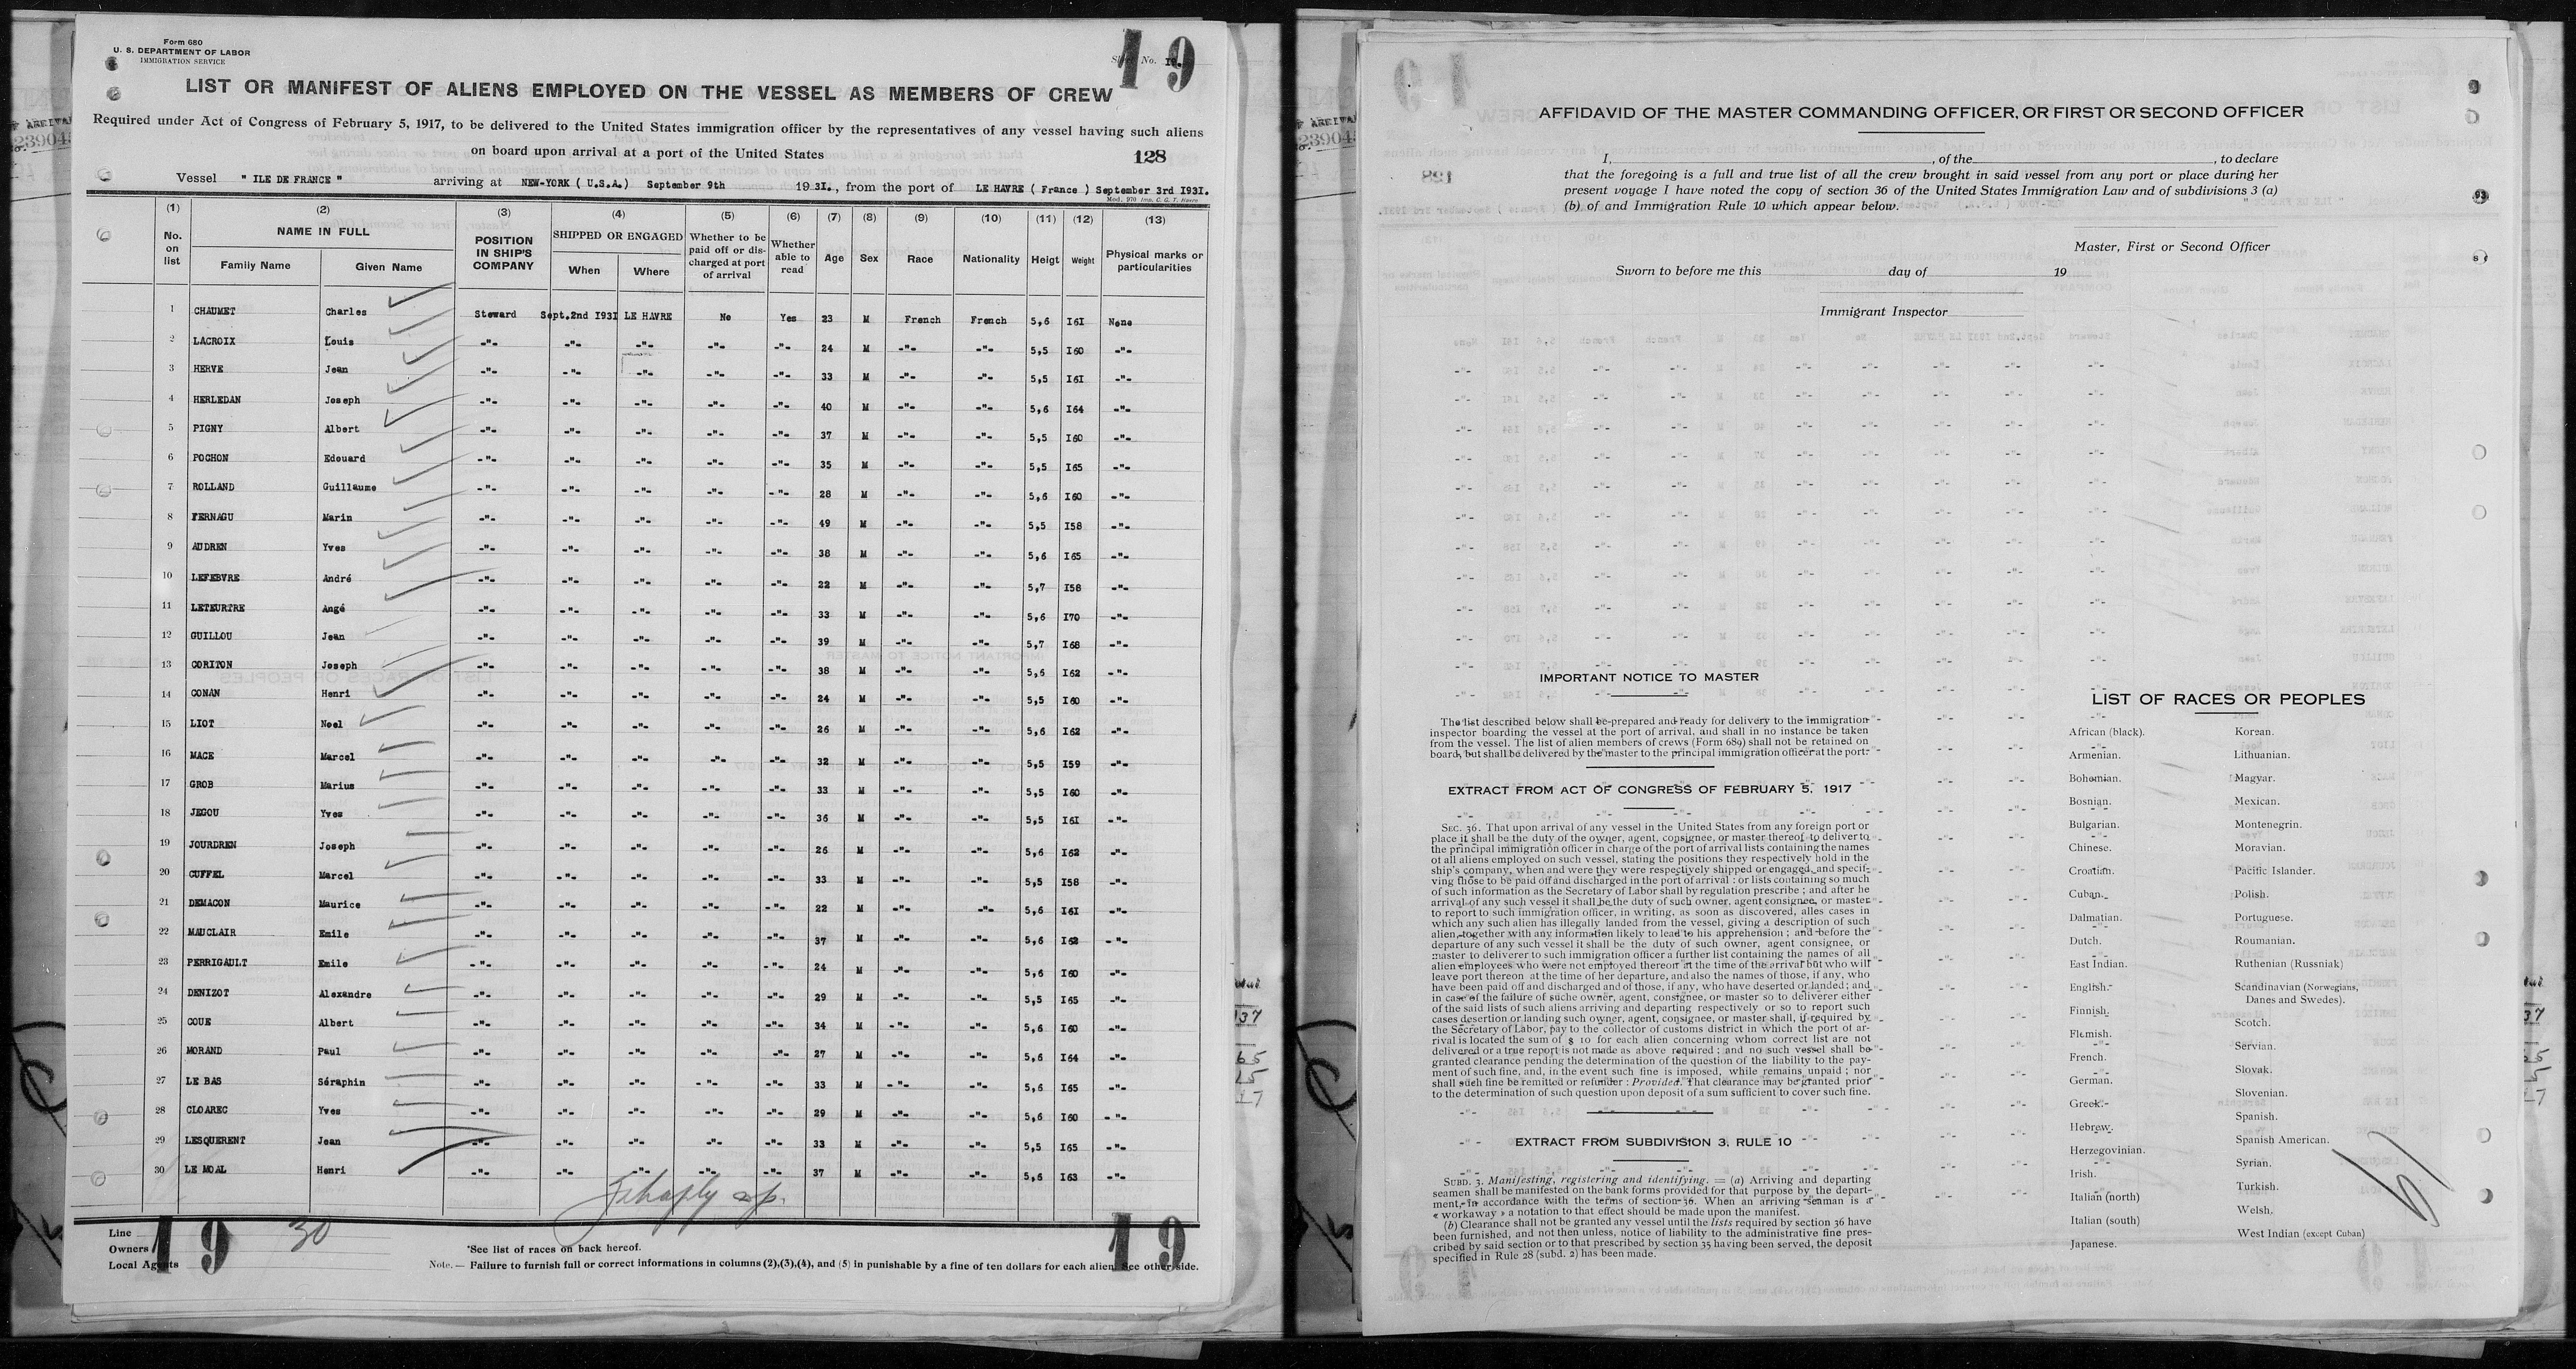 Form 680
U. S. DEPARTMENT OF LABOR
IMMIGRATION SERVICE
Sheet No. 19.
19
LIST OR MANIFEST OF ALIENS EMPLOYED ON THE VESSEL AS MEMBERS OF CREW
Required under Act of Congress of February 5, 1917, to be delivered to the United States immigration officer by the representatives of any vessel having such aliens
on board upon arrival at a port of the United States
128
Vessel " ILE DE FRANCE " arriving at NEW-YORK ( U.S.A.) September 9th 1931., from the port of LE HAVRE ( France ) September 3rd I93I.
Mod. 970 Imp. C. G. T. Havre
(1) (2) (3) (4) (5) (6) (7) (8) (9) (10) (11) (12) (13)
No. on list NAME IN FULL Family Name Given Name POSITION IN SHIP'S COMPANY SHIPPED OR ENGAGED When Where Whether to be paid off or discharged at port of arrival Whether able to read Age Sex Race Nationality Heigt Weight Physical marks or particularities
1 CHAUMET Charles Steward Sept.2nd I93I LE HAVRE No Yes 23 M French French 5,6 I6I None
2 LACROIX Louis -"- -"- -"- -"- -"- 24 M -"- -"- 5,5 I60 -"-
3 HERVE Jean -"- -"- -"- -"- -"- 33 M -"- -"- 5,5 I6I -"-
4 HERLEDAN Joseph -"- -"- -"- -"- -"- 40 M -"- -"- 5,6 I64 -"-
5 PIGNY Albert -"- -"- -"- -"- -"- 37 M -"- -"- 5,5 I60 -"-
6 POCHON Edouard -"- -"- -"- -"- -"- 35 M -"- -"- 5,5 I65 -"-
7 ROLLAND Guillaume -"- -"- -"- -"- -"- 28 M -"- -"- 5,6 I60 -"-
8 FERNAGU Marin -"- -"- -"- -"- -"- 49 M -"- -"- 5,5 I58 -"-
9 AUDREN Yves -"- -"- -"- -"- -"- 38 M -"- -"- 5,6 I65 -"-
10 LEFEBVRE André -"- -"- -"- -"- -"- 22 M -"- -"- 5,7 I58 -"-
11 LETEURTRE Angé -"- -"- -"- -"- -"- 33 M -"- -"- 5,6 I70 -"-
12 GUILLOU Jean -"- -"- -"- -"- -"- 39 M -"- -"- 5,7 I68 -"-
13 CORITON Joseph -"- -"- -"- -"- -"- 38 M -"- -"- 5,6 I62 -"-
14 CONAN Henri -"- -"- -"- -"- -"- 24 M -"- -"- 5,5 I60 -"-
15 LIOT Noel -"- -"- -"- -"- -"- 26 M -"- -"- 5,6 I62 -"-
16 MACE Marcel -"- -"- -"- -"- -"- 32 M -"- -"- 5,5 I59 -"-
17 GROB Marius -"- -"- -"- -"- -"- 33 M -"- -"- 5,5 I60 -"-
18 JEGOU Yves -"- -"- -"- -"- -"- 36 M -"- -"- 5,5 I6I -"-
19 JOURDREN Joseph -"- -"- -"- -"- -"- 26 M -"- -"- 5,6 I62 -"-
20 CUFFEL Marcel -"- -"- -"- -"- -"- 33 M -"- -"- 5,5 I58 -"-
21 DEMACON Maurice -"- -"- -"- -"- -"- 22 M -"- -"- 5,6 I6I -"-
22 MAUCLAIR Emile -"- -"- -"- -"- -"- 37 M -"- -"- 5,6 I62 -"-
23 PERRIGAULT Emile -"- -"- -"- -"- -"- 24 M -"- -"- 5,6 I60 -"-
24 DENIZOT Alexandre -"- -"- -"- -"- -"- 29 M -"- -"- 5,5 I65 -"-
25 COUE Albert -"- -"- -"- -"- -"- 34 M -"- -"- 5,6 I60 -"-
26 MORAND Paul -"- -"- -"- -"- -"- 27 M -"- -"- 5,6 I64 -"-
27 LE BAS Séraphin -"- -"- -"- -"- -"- 33 M -"- -"- 5,6 I65 -"-
28 CLOAREC Yves -"- -"- -"- -"- -"- 29 M -"- -"- 5,6 I60 -"-
29 LESQUERENT Jean -"- -"- -"- -"- -"- 33 M -"- -"- 5,5 I65 -"-
30 LE MOAL Henri -"- -"- -"- -"- -"- 37 M -"- -"- 5,6 I63 -"-
Line
Owners
Local Agents
19
30
19
*See list of races on back hereof.
Note. — Failure to furnish full or correct informations in columns (2),(3),(4), and (5) in punishable by a fine of ten dollars for each alien. See other side.
AFFIDAVID OF THE MASTER COMMANDING OFFICER, OR FIRST OR SECOND OFFICER
I, , of the , to declare
that the foregoing is a full and true list of all the crew brought in said vessel from any port or place during her
present voyage I have noted the copy of section 36 of the United States Immigration Law and of subdivisions 3 (a)
(b) of and Immigration Rule 10 which appear below.
Master, First or Second Officer
Sworn to before me this day of 19
Immigrant Inspector
IMPORTANT NOTICE TO MASTER
The list described below shall be prepared and ready for delivery to the immigration
inspector boarding the vessel at the port of arrival, and shall in no instance be taken
from the vessel. The list of alien members of crews (Form 689) shall not be retained on
board, but shall be delivered by the master to the principal immigration officer at the port.
EXTRACT FROM ACT OF CONGRESS OF FEBRUARY 5. 1917
SEC. 36. That upon arrival of any vessel in the United States from any foreign port or
place it shall be the duty of the owner, agent, consignee, or master thereof to deliver to
the principal immigration officer in charge of the port of arrival lists containing the names
of all aliens employed on such vessel, stating the positions they respectively hold in the
ship's company, when and were they were respectively shipped or engaged, and specif-
ving those to be paid off and discharged in the port of arrival : or lists containing so much
of such information as the Secretary of Labor shall by regulation prescribe ; and after he
arrival of any such vessel it shall be the duty of such owner, agent consignee, or master
to report to such immigration officer, in writing, as soon as discovered, alles cases in
which any such alien has illegally landed from the vessel, giving a description of such
alien, together with any information likely to lead to his apprehension ; and before the
departure of any such vessel it shall be the duty of such owner, agent consignee, or
master to deliverer to such immigration officer a further list containing the names of all
alien employees who were not employed thereon at the time of the arrival but who will
leave port thereon at the time of her departure, and also the names of those, if any, who
have been paid off and discharged and of those, if any, who have deserted or landed ; and
in case of the failure of suche owner, agent, consignee, or master so to deliverer either
of the said lists of such aliens arriving and departing respectively or so to report such
cases desertion or landing such owner, agent, consignee, or master shall, if required by
the Secretary of Labor, pay to the collector of customs district in which the port of ar-
rival is located the sum of $ 10 for each alien concerning whom correct list are not
delivered or a true report is not made as above required ; and no such vessel shall be
granted clearance pending the determination of the question of the liability to the pay-
ment of such fine, and, in the event such fine is imposed, while remains unpaid ; nor
shall such fine be remitted or refunder : Provided. That clearance may be granted prior
to the determination of such question upon deposit of a sum sufficient to cover such fine.
EXTRACT FROM SUBDIVISION 3, RULE 10
SUBD. 3. Manifesting, registering and identifying. = (a) Arriving and departing
seamen shall be manifested on the bank forms provided for that purpose by the depart-
ment, in accordance with the terms of section 36. When an arriving seaman is a
« workaway » a notation to that effect should be made upon the manifest.
(b) Clearance shall not be granted any vessel until the lists required by section 36 have
been furnished, and not then unless, notice of liability to the administrative fine pres-
cribed by said section or to that prescribed by section 35 having been served, the deposit
specified in Rule 28 (subd. 2) has been made.
LIST OF RACES OR PEOPLES
African (black).
Armenian.
Bohemian.
Bosnian.
Bulgarian.
Chinese.
Croatian.
Cuban.
Dalmatian.
Dutch.
East Indian.
English.
Finnish.
Flemish.
French.
German.
Greek.
Hebrew.
Herzegovinian.
Irish.
Italian (north)
Italian (south)
Japanese.
Korean.
Lithuanian.
Magyar.
Mexican.
Montenegrin.
Moravian.
Pacific Islander.
Polish.
Portuguese.
Roumanian.
Ruthenian (Russniak)
Scandinavian (Norwegians,
Danes and Swedes).
Scotch.
Servian.
Slovak.
Slovenian.
Spanish.
Spanish American.
Syrian.
Turkish.
Welsh.
West Indian (except Cuban)